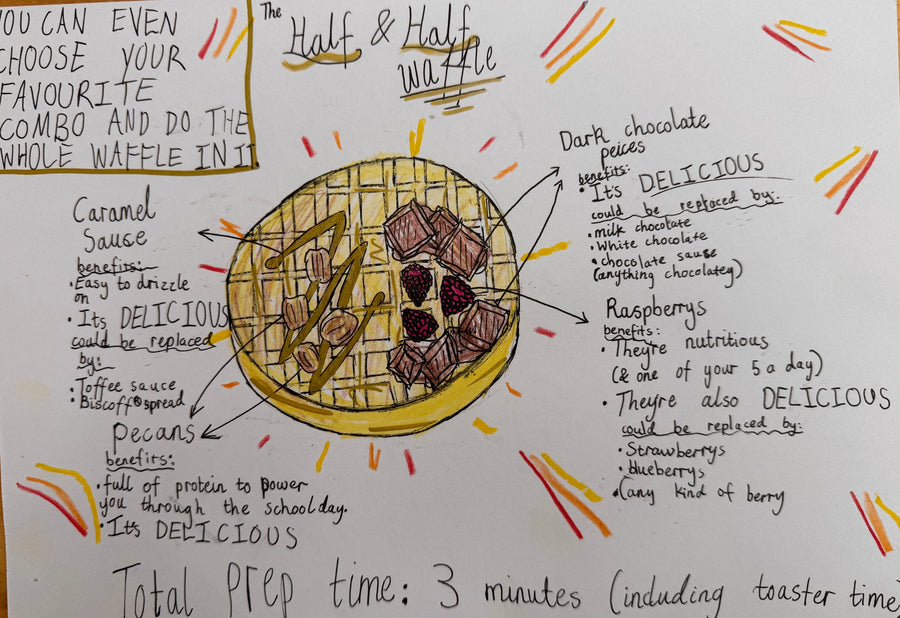 YOU CAN EVEN
CHOOSE YOUR
FAVOURITE
COMBO AND DO THE
WHOLE WAFFLE IN IT.
The
Half & Half
waffle
Caramel
Sauce
benefits:
• Easy to drizzle
on
• Its DELICIOUS
could be replaced
by:
• Toffee sauce
• Biscoff® spread
pecans
benefits:
• full of protein to power
you through the schoolday.
• It's DELICIOUS
Dark chocolate
peices
benefits:
• It's DELICIOUS
could be replaced by:
• milk chocolate
• White chocolate
• chocolate sause
(anything chocolatey)
Raspberrys
benefits:
• They're nutritious
(& one of your 5 a day)
• They're also DELICIOUS
could be replaced by:
• Strawberrys
• blueberrys
• (any kind of berry
Total prep time: 3 minutes (including toaster time)